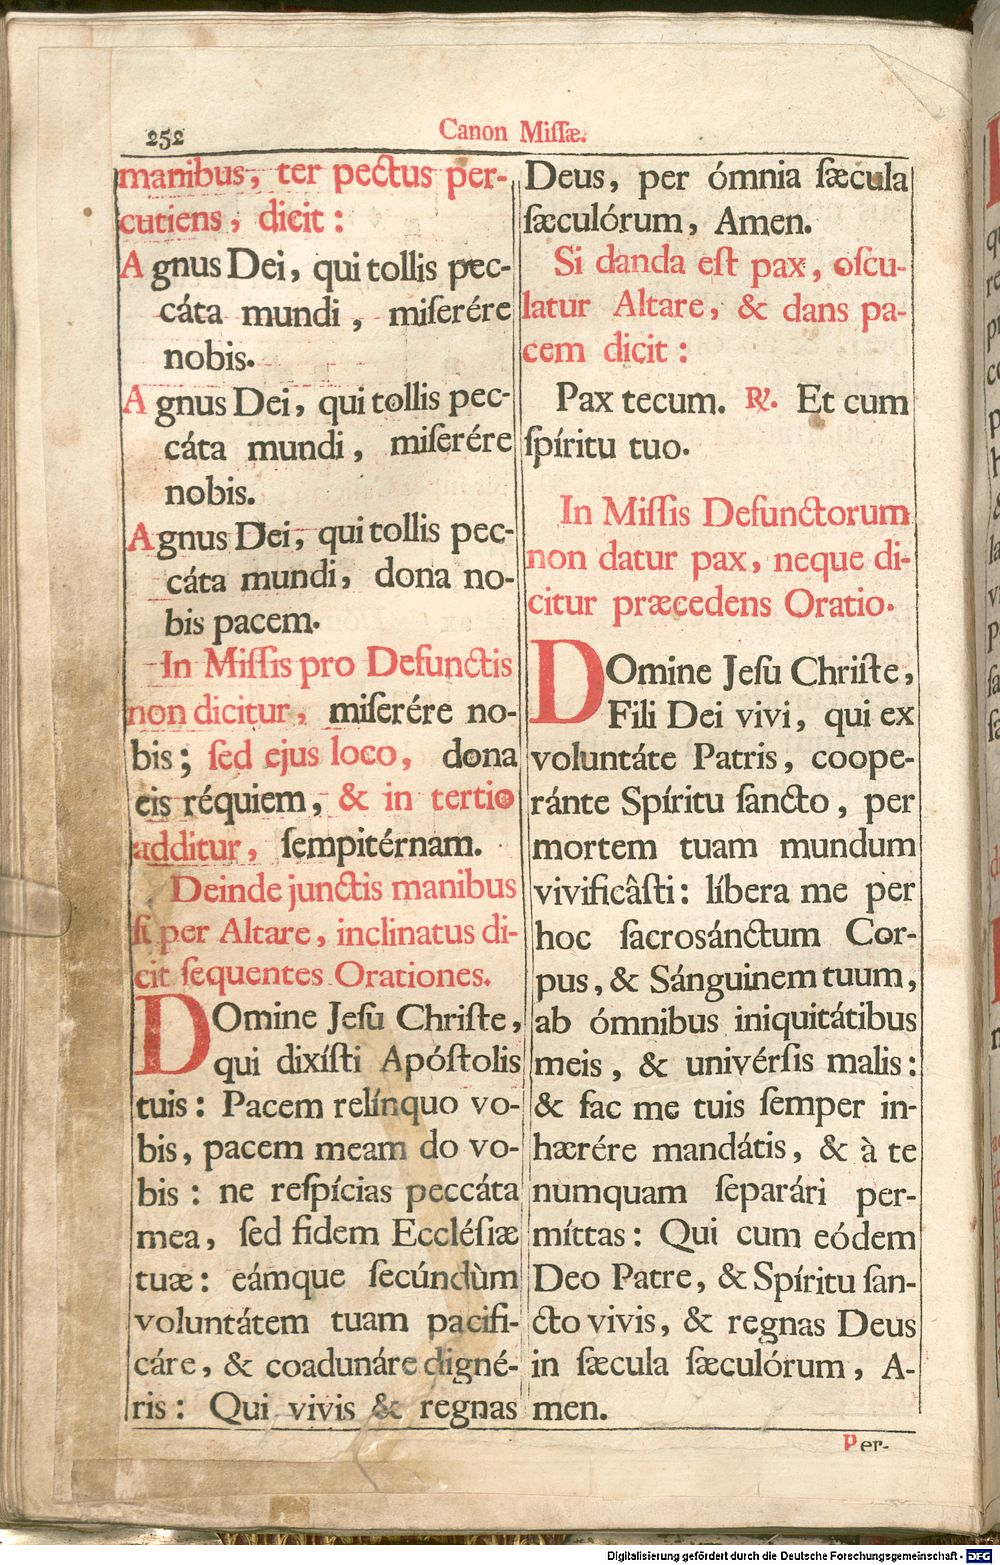 252
Canon Miſſæ.
manibus, ter pectus per-
cutiens, dicit:
Agnus Dei, qui tollis pec-
cáta mundi, miſerére
nobis.
Agnus Dei, qui tollis pec-
cáta mundi, miſerére
nobis.
Agnus Dei, qui tollis pec-
cáta mundi, dona no-
bis pacem.
In Miſſis pro Defunctis
non dicitur, miſerére no-
bis; ſed ejus loco, dona
eis réquiem, & in tertio
additur, ſempitérnam.
Deinde junctis manibus
ſuper Altare, inclinatus di-
cit ſequentes Orationes.
DOmine Jeſu Chriſte,
qui dixíſti Apóſtolis
tuis: Pacem relínquo vo-
bis, pacem meam do vo-
bis: ne reſpícias peccáta
mea, ſed fidem Eccléſiæ
tuæ: eámque ſecúndùm
voluntátem tuam pacifi-
cáre, & coadunáre digné-
ris: Qui vivis & regnas
Deus, per ómnia ſæcula
ſæculórum, Amen.
Si danda eſt pax, oſcu-
latur Altare, & dans pa-
cem dicit:
Pax tecum. ℟. Et cum
ſpíritu tuo.
In Miſſis Defunctorum
non datur pax, neque di-
citur præcedens Oratio.
DOmine Jeſu Chriſte,
Fili Dei vivi, qui ex
voluntáte Patris, coope-
ránte Spíritu ſancto, per
mortem tuam mundum
vivificâſti: líbera me per
hoc ſacrosánctum Cor-
pus, & Sánguinem tuum,
ab ómnibus iniquitátibus
meis, & univérſis malis:
& fac me tuis ſemper in-
hærére mandátis, & à te
numquam ſeparári per-
míttas: Qui cum eódem
Deo Patre, & Spíritu ſan-
cto vivis, & regnas Deus
in ſæcula ſæculórum, A-
men.
Per-
Digitalisierung gefördert durch die Deutsche Forschungsgemeinschaft - DFG